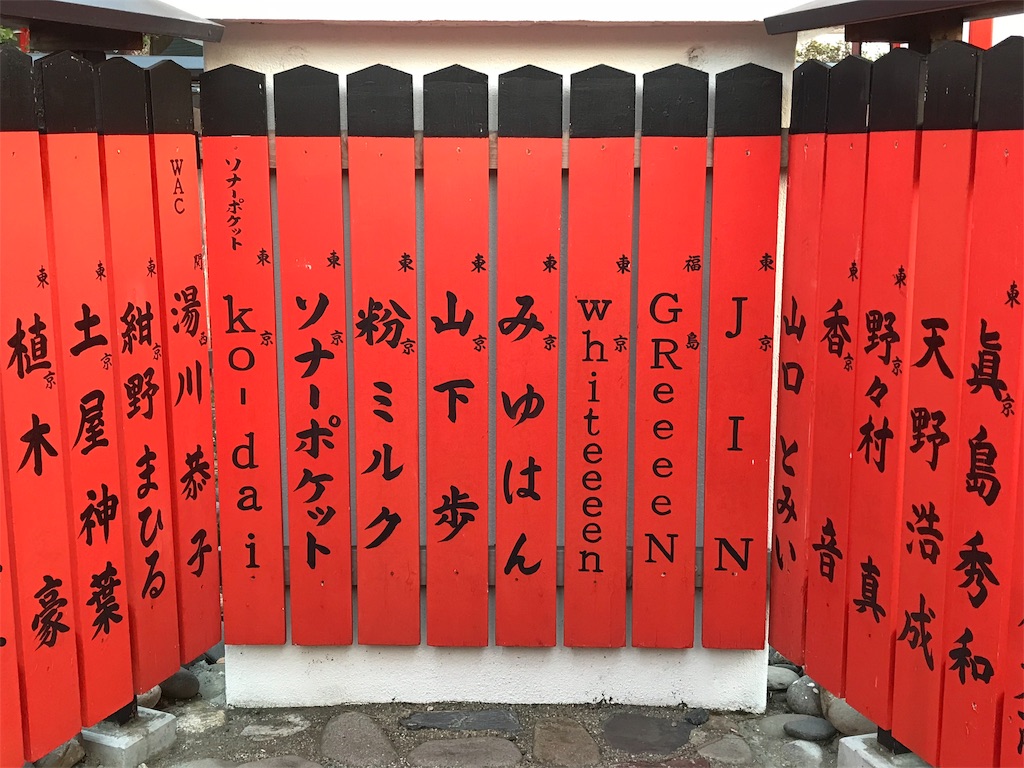 東京 植木 豪
東京 土屋 神葉
東京 紺野 まひる
WAC
関西 湯川 恭子
ソナーポケット
東京 ko-dai
東京 ソナーポケット
東京 粉ミルク
東京 山下 歩
東京 みゆはん
東京 whiteeeen
福島 GReeeeN
東京 JIN
山口 とみい
東京 香音
東京 野々村 真
天野 浩成
東京 眞島 秀和